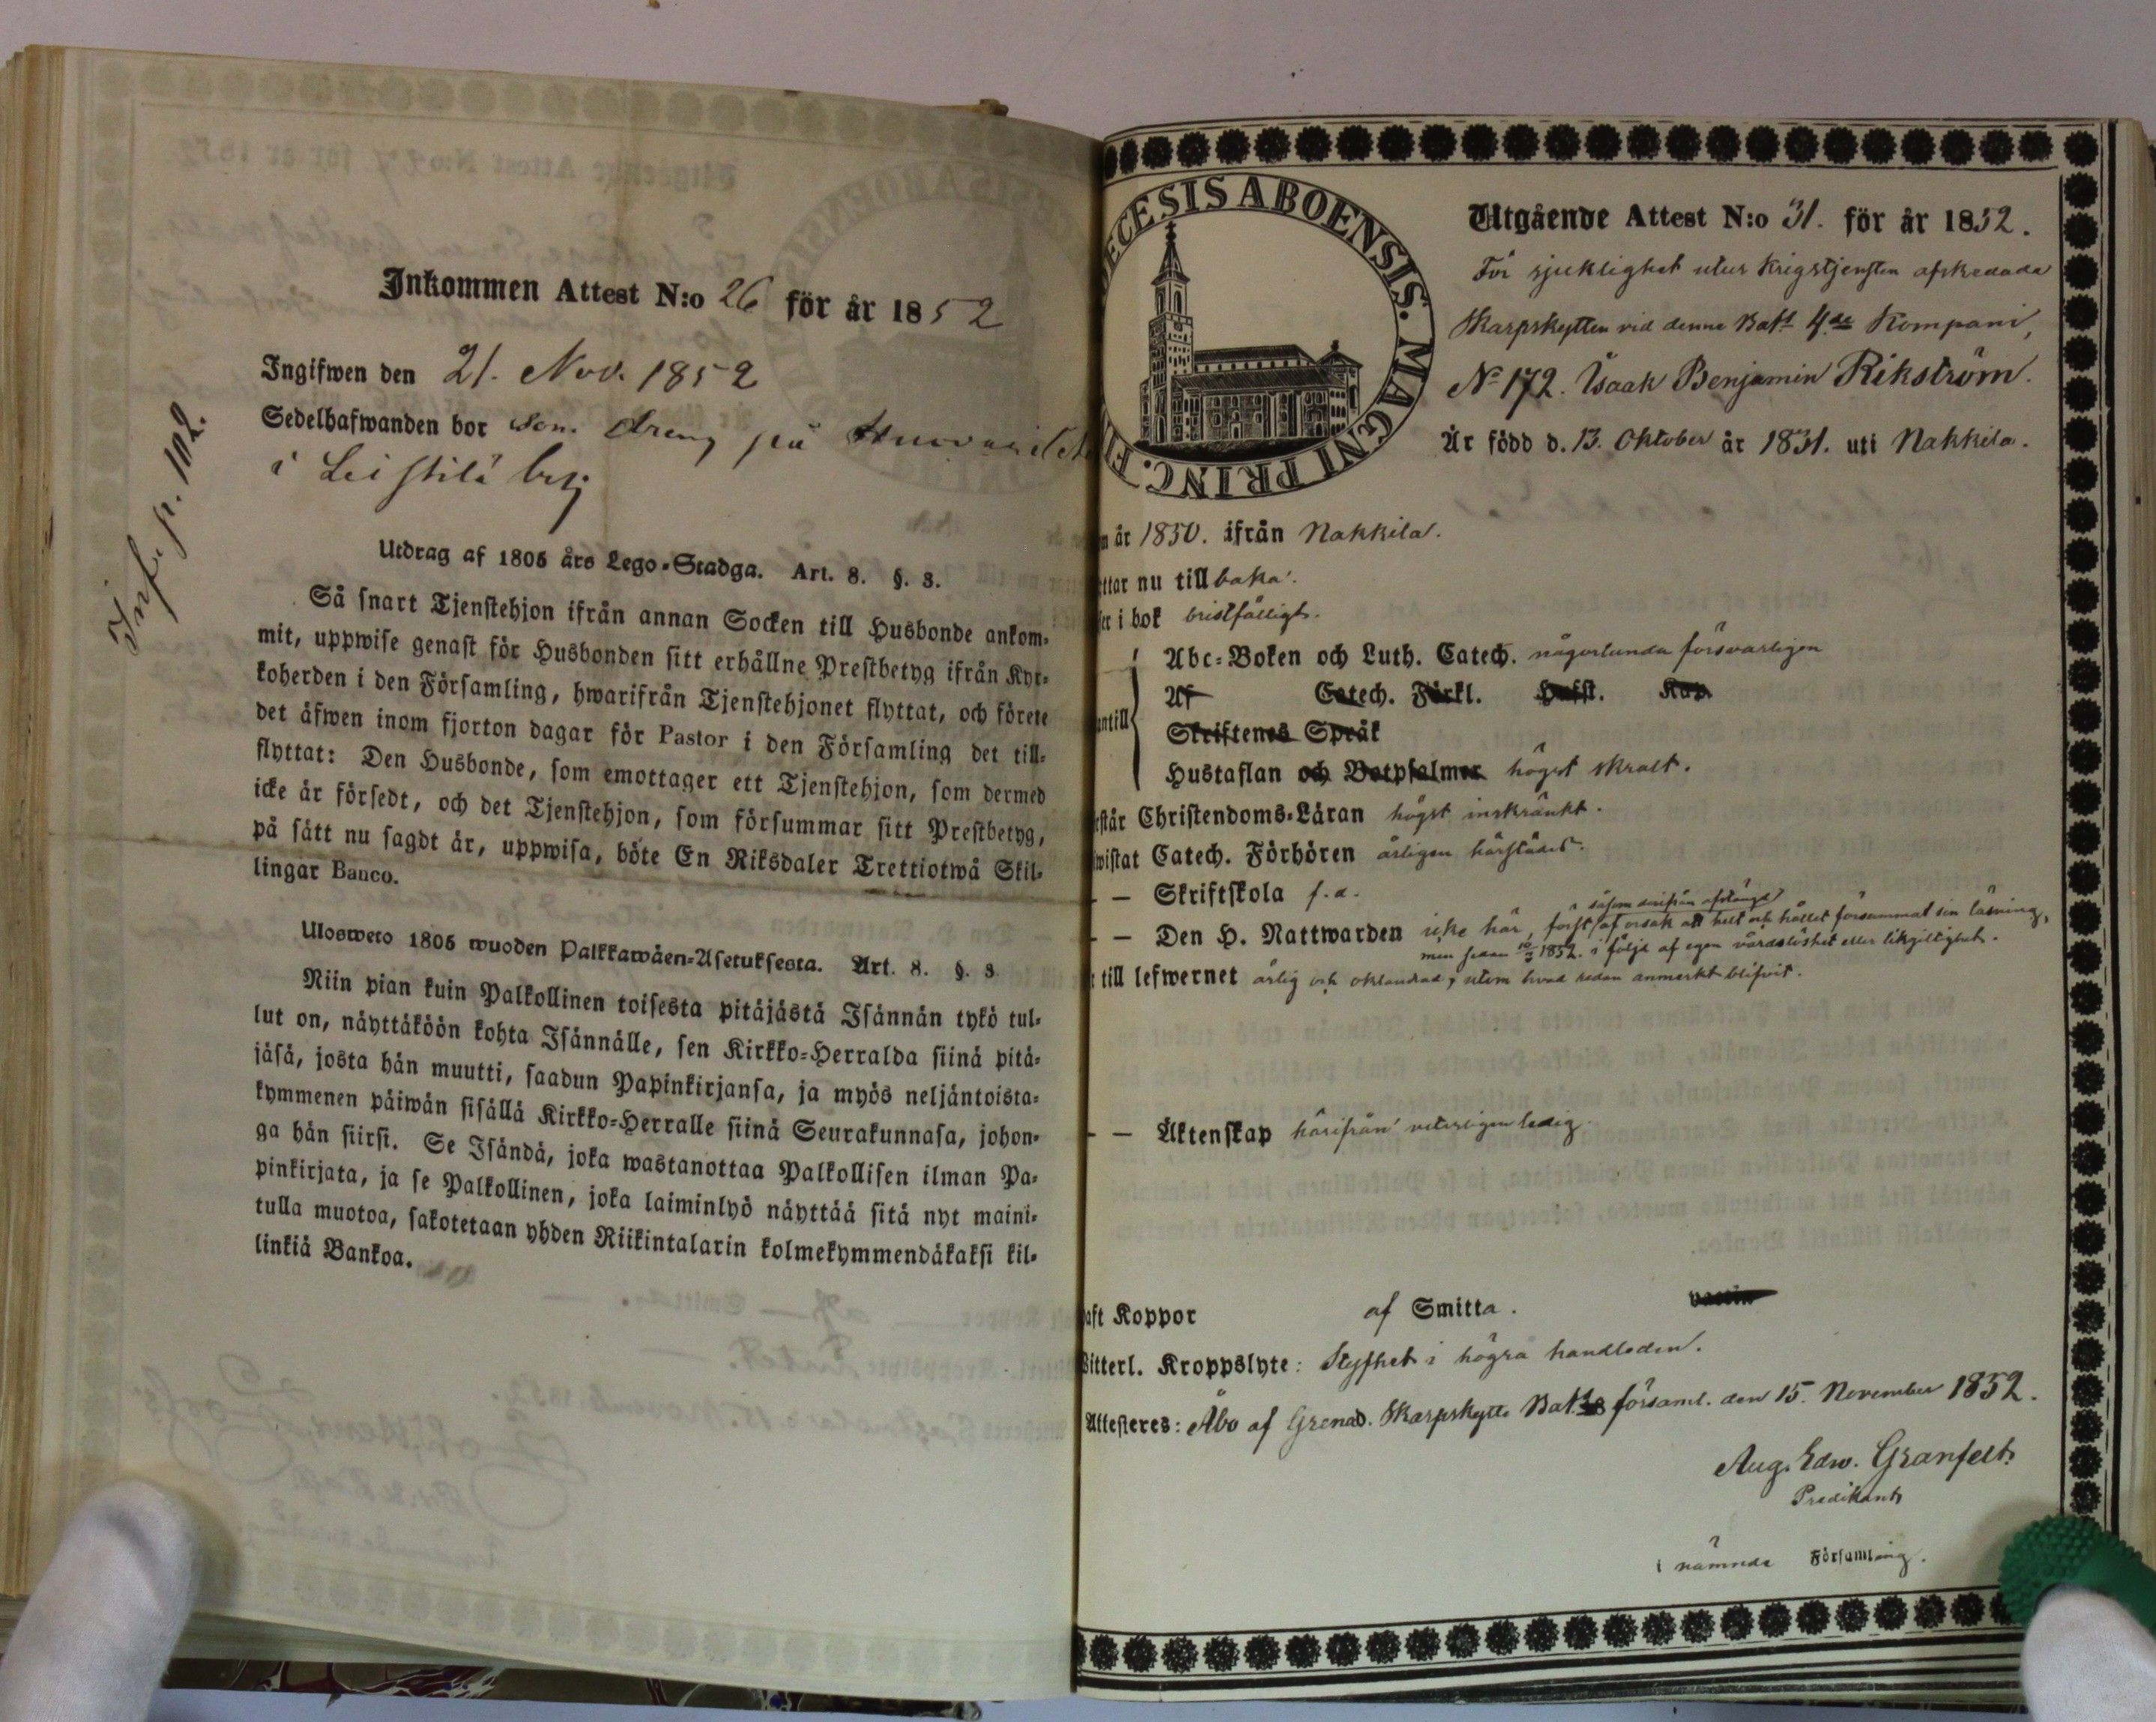 Inkommen Attest N:o 26 för år 1852
Ingifwen den 21. Nov. 1852
Sedelhafwanden bor som dreng på
i Leistilä by
Inf. p. 102.
Utdrag af 1805 års Lego-Stadga. Art. 8. §. 3.
Så snart Tjenstehjon ifrån annan Socken till Husbonde ankom-
mit, uppwise genast för Husbonden sitt erhållne Prestbetyg ifrån Kyr-
koherden i den Församling, hwarifrån Tjenstehjonet flyttat, och förete
det äfwen inom fjorton dagar för Pastor i den Församling det till-
flyttat: Den Husbonde, som emottager ett Tjenstehjon, som dermed
icke är försedt, och det Tjenstehjon, som försummar sitt Prestbetyg,
på sätt nu sagdt är, uppwisa, böte En Riksdaler Trettiotwå Skil-
lingar Banco.
Ulosweto 1805 wuoden Palkkawäen-Asetuksesta. Art. 8. §. 3
Niin pian kuin Palkollinen toisesta pitäjästä Isännän tykö tul-
lut on, näyttäköön kohta Isännälle, sen Kirkko-Herralda siinä pitä-
jäsä, josta hän muutti, saadun Papinkirjansa, ja myös neljäntoista-
kymmenen päiwän sisällä Kirkko-Herralle siinä Seurakunnasa, johon-
ga hän siirsi. Se Isändä, joka wastanottaa Palkollisen ilman Pa-
pinkirjata, ja se Palkollinen, joka laiminlyö näyttää sitä nyt maini-
tulla muotoa, sakotetaan yhden Riikintalarin kolmekymmendäkaksi kil-
linkiä Bankoa.
ECESIS ABOENSIS. MAGNI PRINC. FI
Utgående Attest N:o 31. för år 1852.
För sjuklighet utur Krigstjensten afskedade
Skarpskytten vid denne Batt 4.de Kompani,
No 172. Isaak Benjamin Rikström.
Är född d. 13. Oktober år 1831. uti Nakkila.
m år 1850. ifrån Nakkila.
ttar nu tillbaka.
er i bok bristfälligt.
Abc-Boken och Luth. Catech. någorlunda försvarligen
Af Catech. Förkl. Husst. Kap.
antill
Skriftenes Språk
Hustaflan och Botpsalmer högst skralt.
rstår Christendoms-Läran högst inskränkt.
wistat Catech. Förhören årligen härstädes.
– – Skriftskola f.d.
såsom derifrån afstängd
– – Den H. Nattwarden icke här, först af orsak att helt och hållet försummat sin läsning,
men sedan 10/3 1852. i följd af egen vårdslöshet eller likgiltighet.
t till lefwernet ärlig och oklandrad, utom hvad redan anmerkt blifvit.
– – Äktenskap härifrån veterligen ledig.
aft Koppor af Smitta. vaccin
Witterl. Kroppslyte: Styfhet i högra handleden.
Attesteres: Åbo af Grenad. Skarpskytte Batts församl. den 15 November 1852.
Aug. Edw. Granfelt.
Predikant
i nämnde Församling.